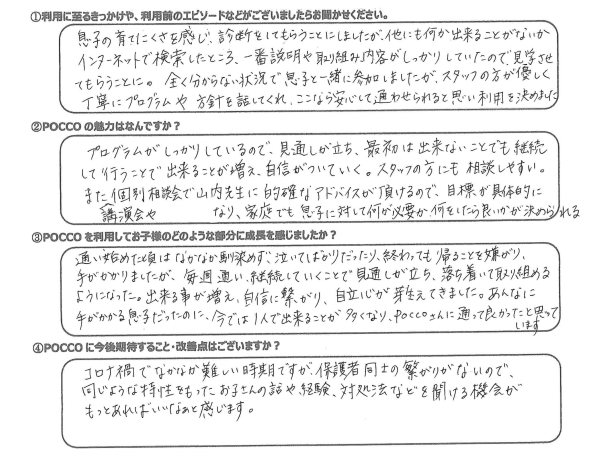 ①利用に至るきっかけや、利用前のエピソードなどがございましたらお聞かせください。
息子の育てにくさを感じ、診断をしてもらうことにしましたが、他にも何か出来ることがないか
インターネットで検索したところ、一番説明や取り組み内容がしっかりしていたので見学させ
てもらうことに。全く分からない状況で息子と一緒に参加しましたが、スタッフの方が優しく
丁寧にプログラムや方針を話してくれ、ここなら安心して通わせられると思い利用を決めました
②POCCOの魅力はなんですか？
プログラムがしっかりしているので、見通しが立ち、最初は出来ないことでも継続
して行うことで出来ることが増え、自信がついていく。スタッフの方にも相談しやすい。
また個別相談会で山内先生に的確なアドバイスが頂けるので、目標が具体的に
講演会や
なり、家庭でも息子に対して何が必要か何をしたら良いかが決められる
③POCCOを利用してお子様のどのような部分に成長を感じましたか？
通い始めた頃はなかなか馴染めず、泣いてばかりだったり、終わっても帰ることを嫌がり、
手がかかりましたが、毎週通い、継続していくことで見通しが立ち、落ち着いて取り組める
ようになった。出来る事が増え、自信に繋がり、自立心が芽生えてきました。あんなに
手がかかる息子だったのに、今では1人で出来ることが多くなり、POCCOさんに通って良かったと思って
います
④POCCOに今後期待すること・改善点はございますか？
コロナ禍でなかなか難しい時期ですが、保護者同士の繋がりがないので、
同じような特性をもったお子さんの話や経験、対処法などを聞ける機会が
もっとあればいいなぁと感じます。